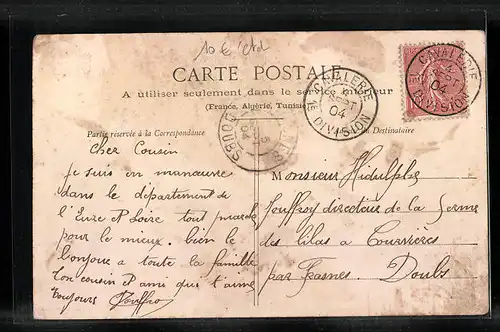 CARTE POSTALE
A utiliser seulement dans le service intérieur
(France, Algérie, Tunisie)
Partie réservée à la Correspondance
du Destinataire
CAVALERIE
04
DIVISION
CAVALERIE
04
DIVISION
DOUBS
Cher Cousin
Je suis en manœuvre
dans le département de
l'Eure et Loire tout marche
pour le mieux. bien le
bonjour a toute la famille
Ton cousin et ami qui t'aime
toujours Jouffroy
Monsieur Hidulphe
Jouffroy directeur de la ferme
des lilas a Courvières
par Frasnes. Doubs